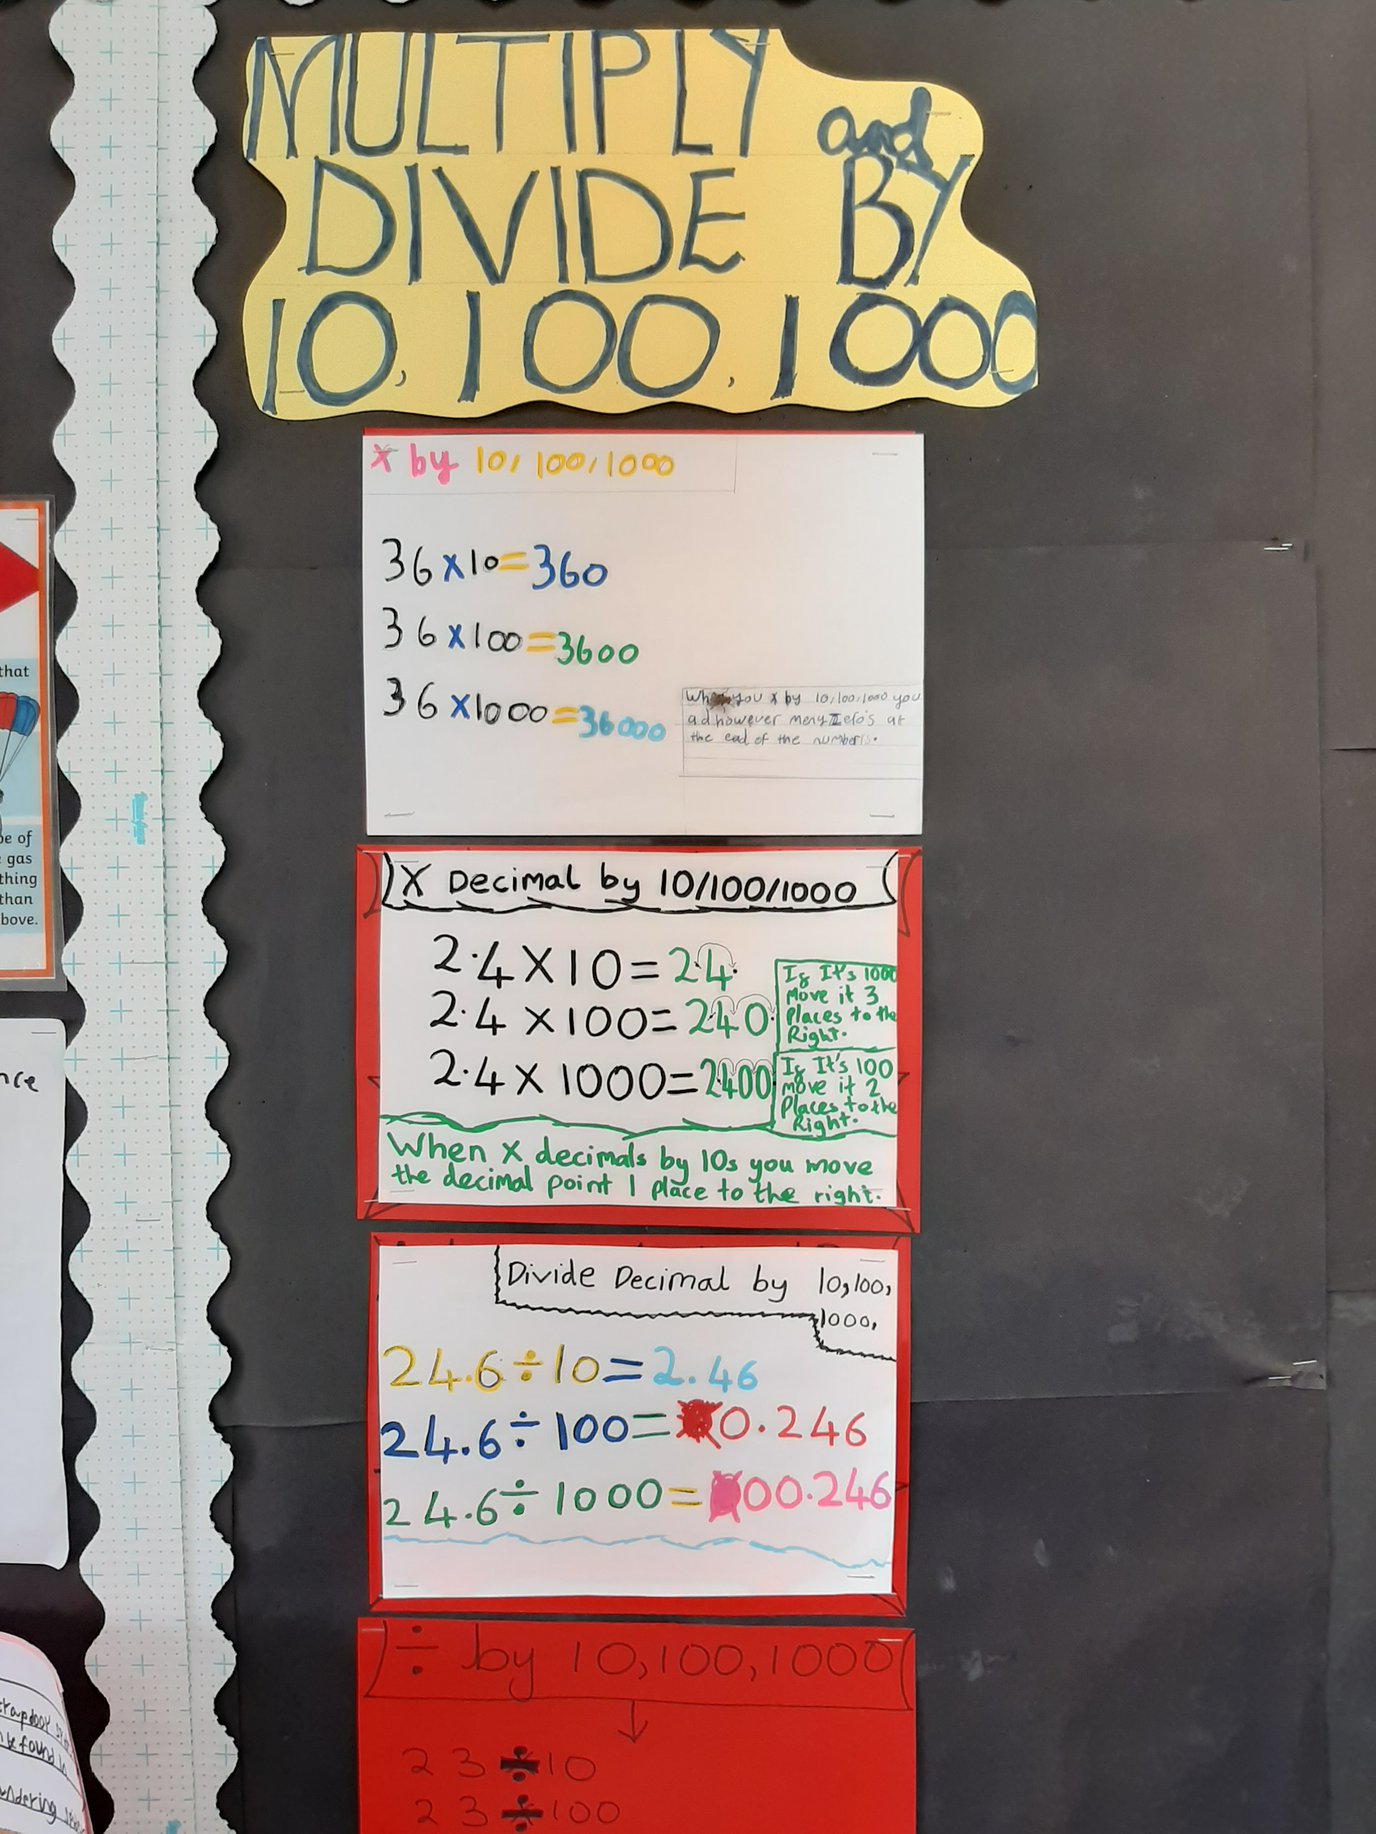 MULTIPLY and
DIVIDE BY
10, 100, 1000
x by 10/100/1000
36 x 10 = 360
36 x 100 = 3600
36 x 1000 = 36000
you x by 10,100,1000 you
ad however meny Zero's at
the end of the numbers.
X Decimal by 10/100/1000
2.4 X 10 = 24.
2.4 X 100 = 240.
2.4 X 1000 = 2400
If It's 1000
move it 3
Places to the
Right.
If It's 100
move it 2
Places to the
Right.
When X decimals by 10s you move
the decimal point 1 place to the right.
Divide Decimal by 10,100,
1000,
24.6 ÷ 10 = 2.46
24.6 ÷ 100 = 0.246
24.6 ÷ 1000 = 00.246
÷ by 10,100,1000
23 ÷ 10
23 ÷ 100
that
be of
gas
thing
than
bove.
nce